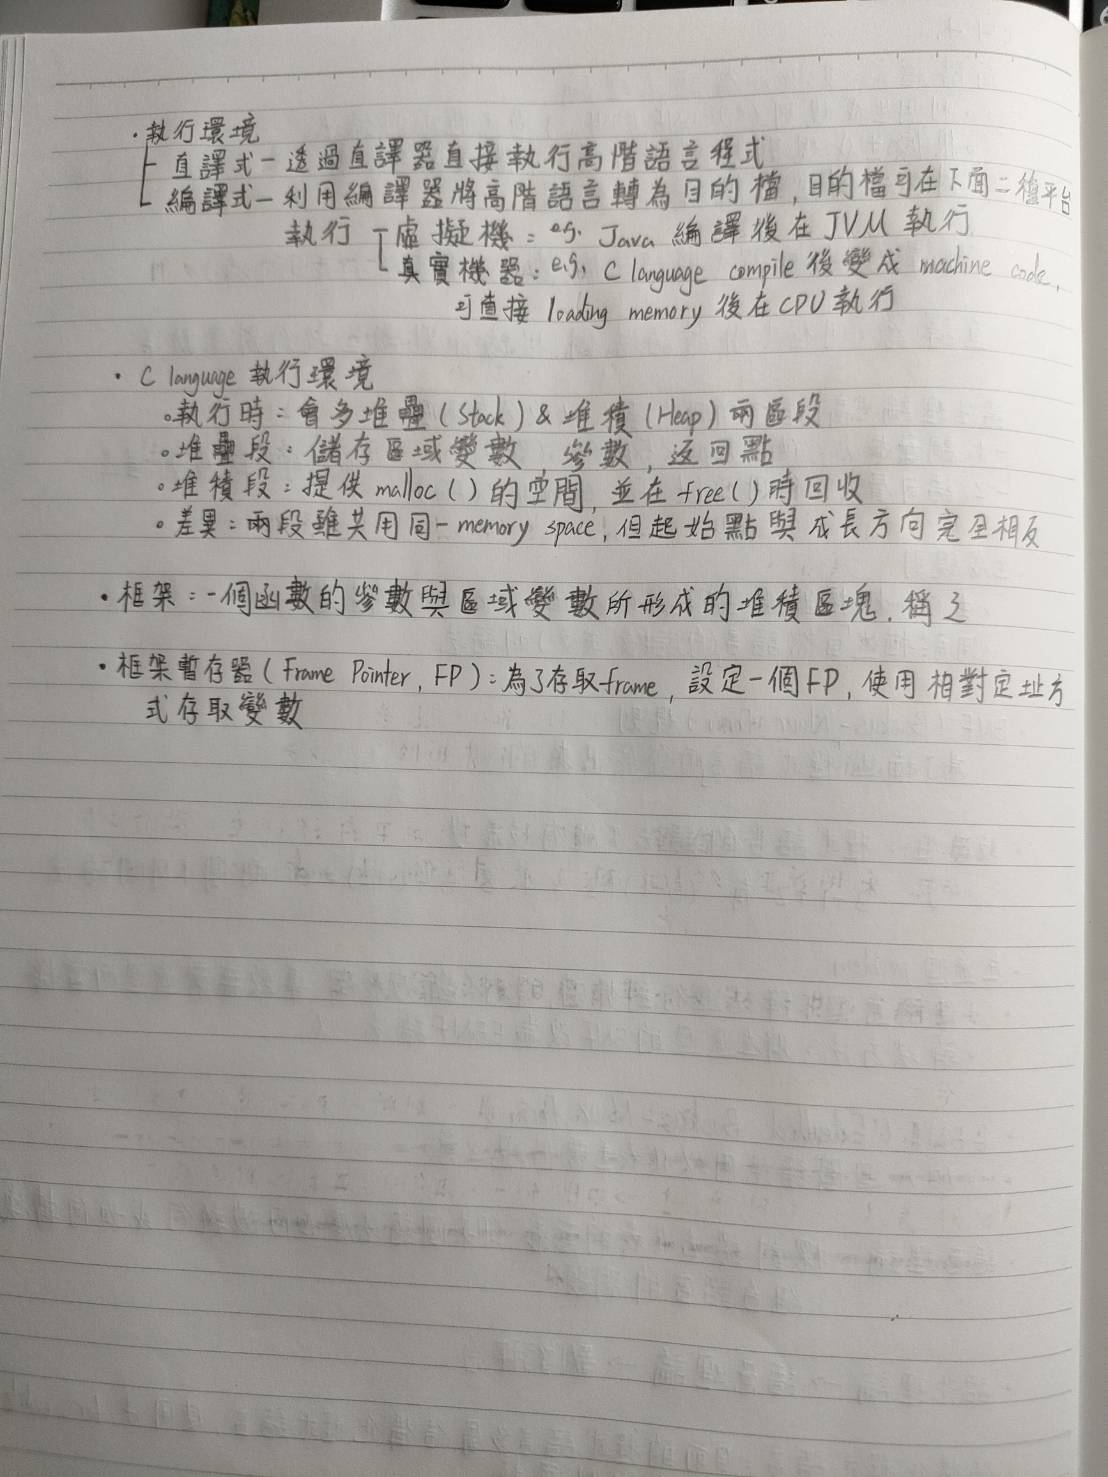 ・執行環境
直譯式－透過直譯器直接執行高階語言程式
編譯式－利用編譯器將高階語言轉為目的檔,目的檔可在下面二種平台
執行 虛擬機：eg. Java 編譯後在 JVM 執行
真實機器：e.g, C language compile 後變成 machine code,
可直接 loading memory 後在 CPU 執行
・C language 執行環境
。執行時：會多堆疊(Stack) & 堆積(Heap) 兩區段
。堆疊段：儲存區域變數, 參數, 返回點
。堆積段：提供 malloc( ) 的空間, 並在 free( ) 時回收
。差異：兩段雖共用同一 memory space, 但起始點與成長方向完全相反
・框架：一個函數的參數與區域變數所形成的堆積區塊, 稱之
・框架暫存器 (Frame Pointer, FP)：為了存取frame, 設定一個FP, 使用相對定址方
式存取變數